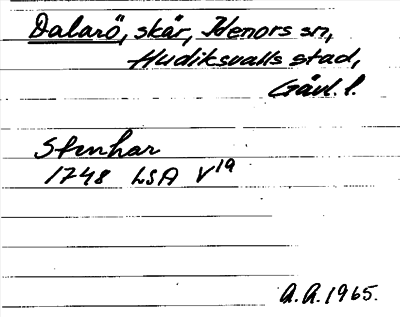 Dalarö, skär, Idenors sn,
Hudiksvalls stad,
Gävl. l.
Stenhar
1748 LSA V19
A.A. 1965.